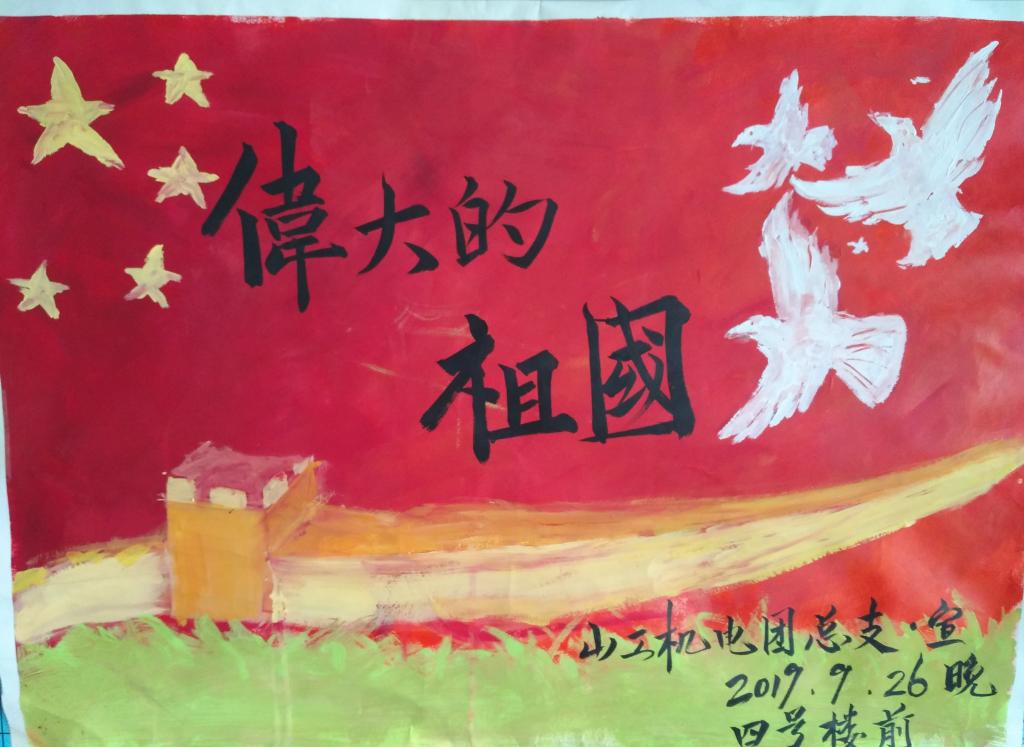 偉大的
祖國
山工机电团总支·宣
2019.9.26晚
四号楼前